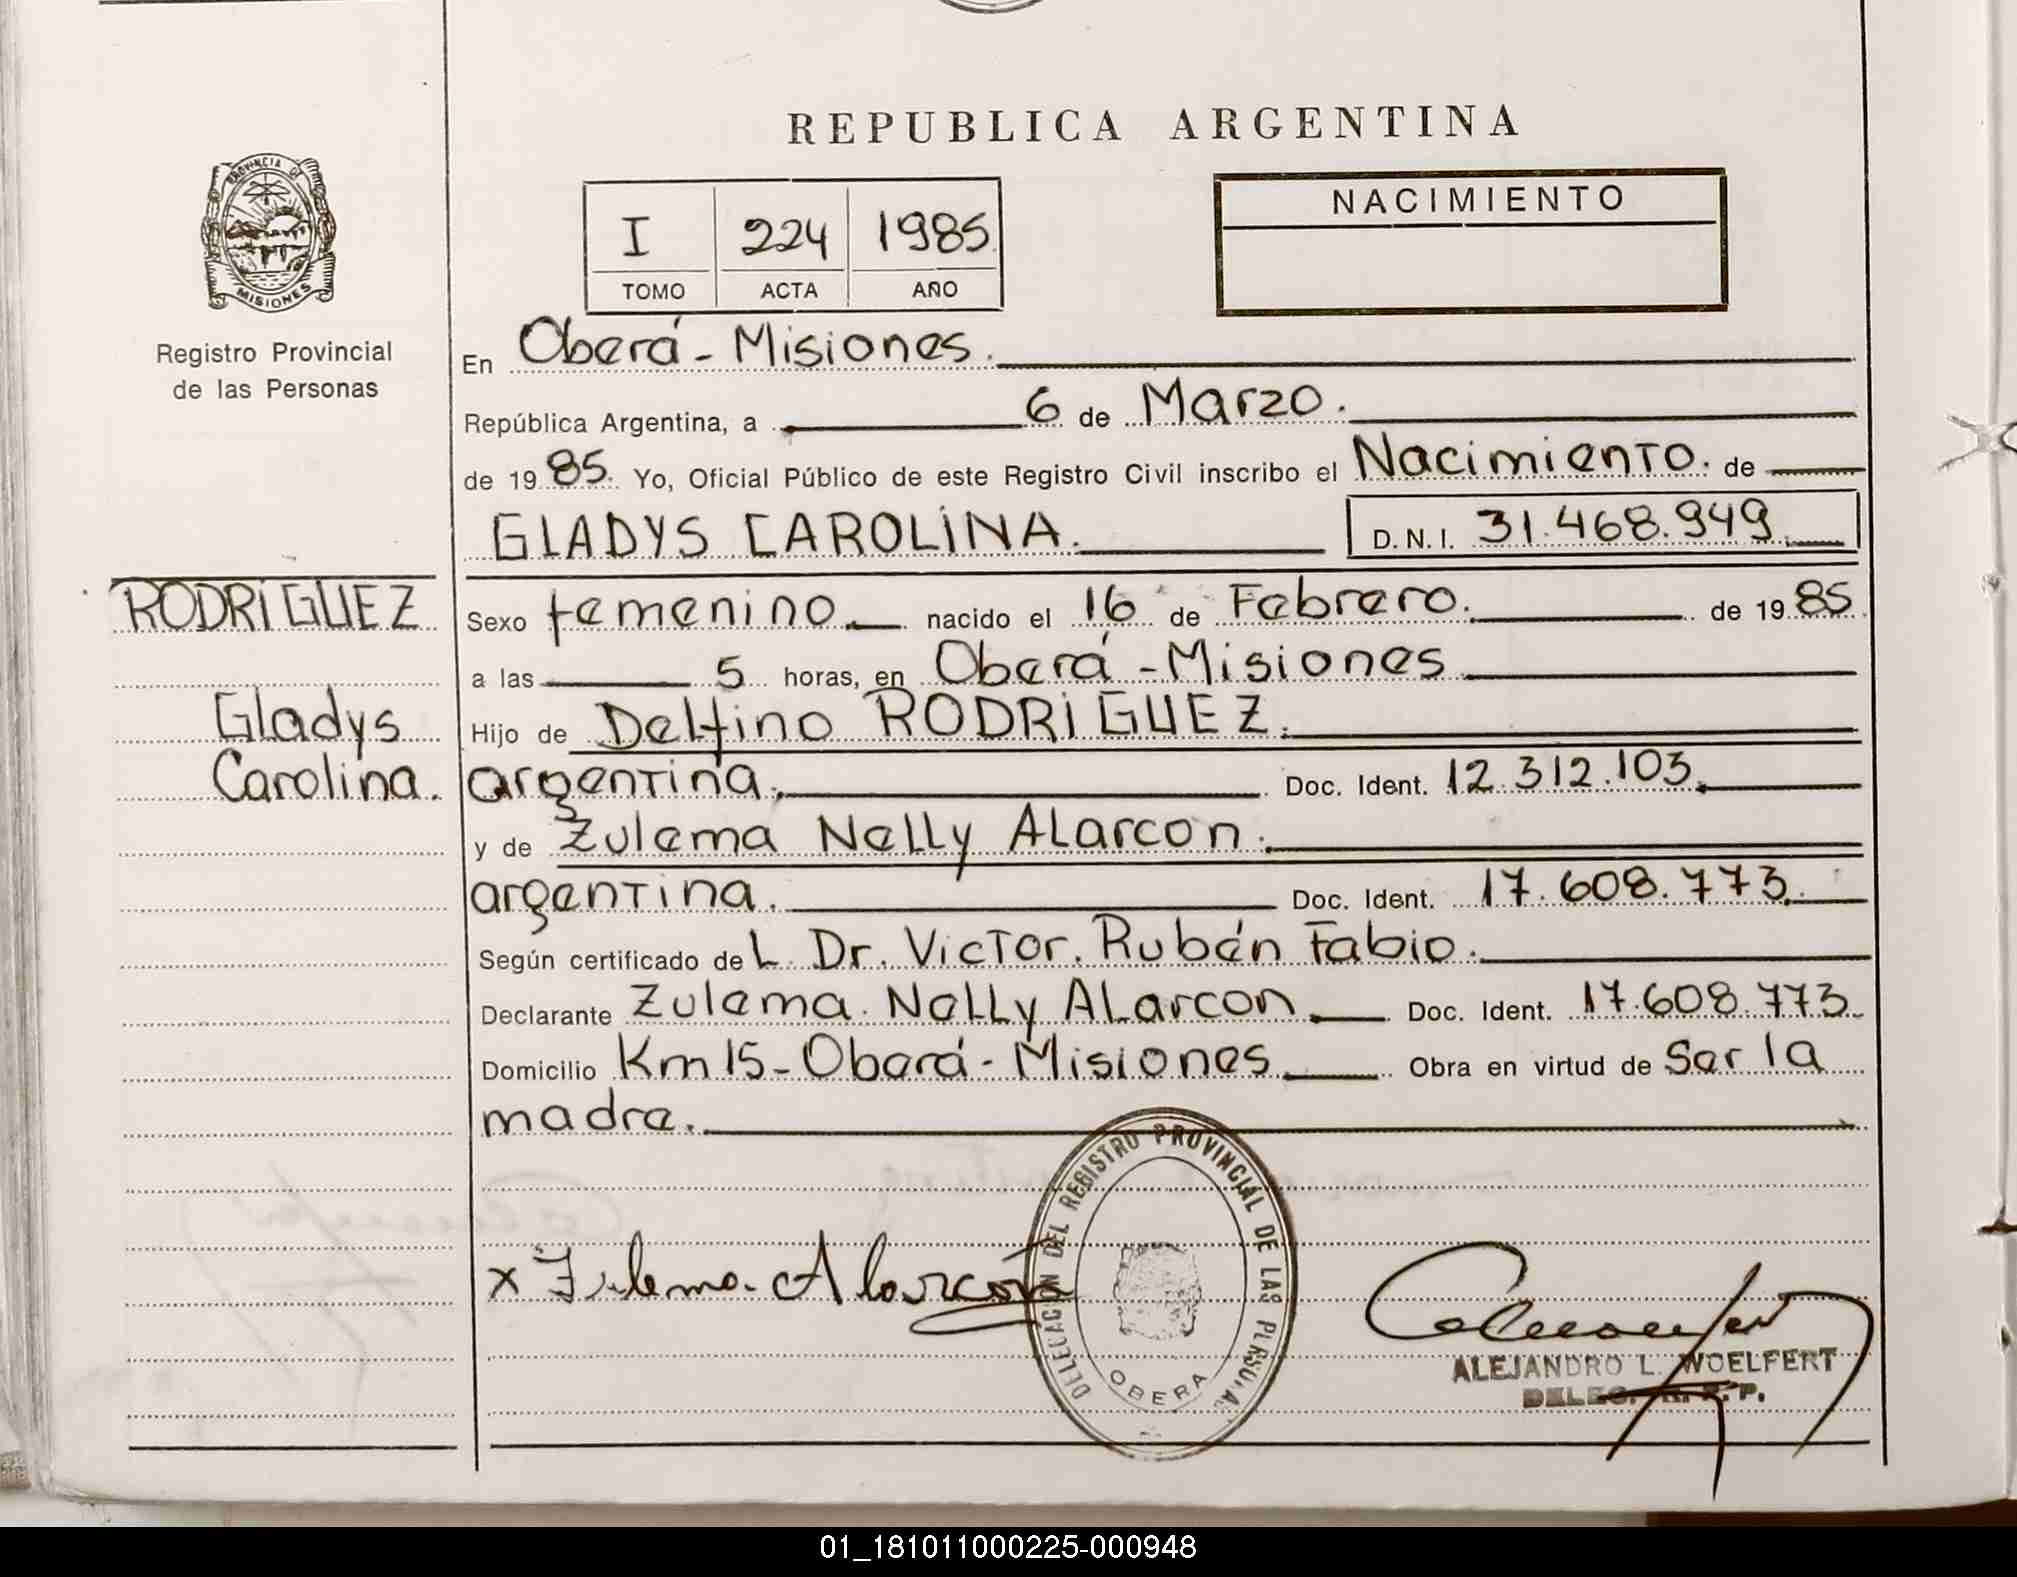 REPUBLICA ARGENTINA
PROVINCIA DE
MISIONES
Registro Provincial
de las Personas
I 224 1985
TOMO ACTA AÑO
NACIMIENTO
En Oberá - Misiones.
República Argentina, a 6 de Marzo.
de 19 85. Yo, Oficial Público de este Registro Civil inscribo el Nacimiento. de
GLADYS CAROLINA. D.N.I. 31.468.949
RODRIGUEZ
Gladys
Carolina.
Sexo femenino nacido el 16 de Febrero. de 19 85
a las 5 horas, en Oberá - Misiones
Hijo de Delfino RODRIGUEZ.
argentina. Doc. Ident. 12.312.103
y de Zulema Nelly Alarcon.
argentina. Doc. Ident. 17.608.773
Según certificado de L Dr. Victor Rubén Fabio.
Declarante Zulema Nelly Alarcon Doc. Ident. 17.608.773
Domicilio Km 15 - Oberá - Misiones Obra en virtud de Ser la
madre.
x Zulema Alarcón
DELEGACION DEL REGISTRO PROVINCIAL DE LAS PERSONAS
OBERA
ALEJANDRO L. WOELFERT
DELEG. R. P. P.
01_181011000225-000948